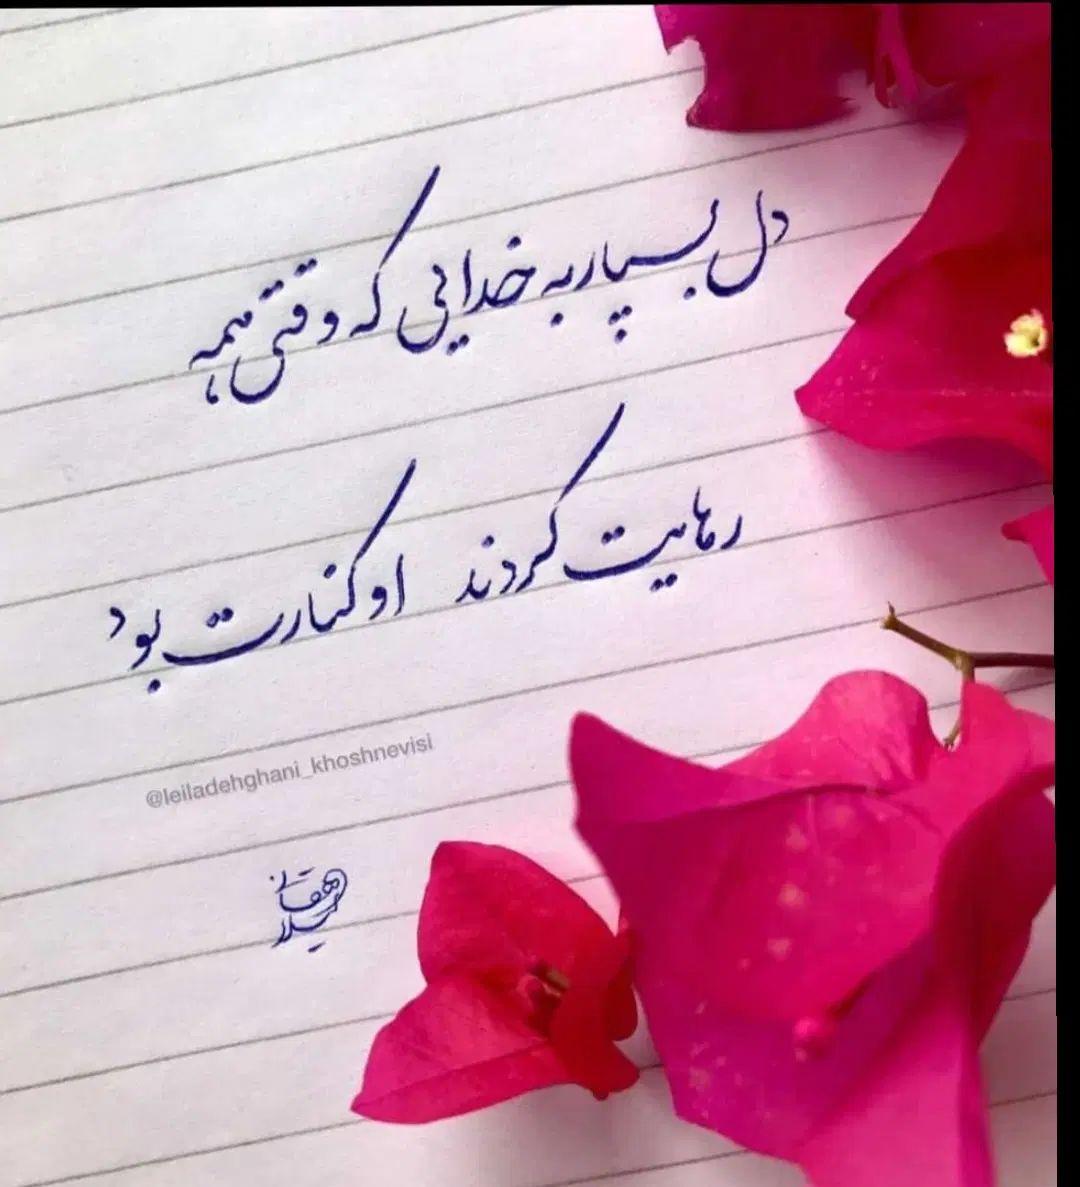 دل بسپار به خدایی که وقتی همه
رهایت کردند او کنارت بود
@leiladehghani_khoshnevisi
لیلا دهقانی